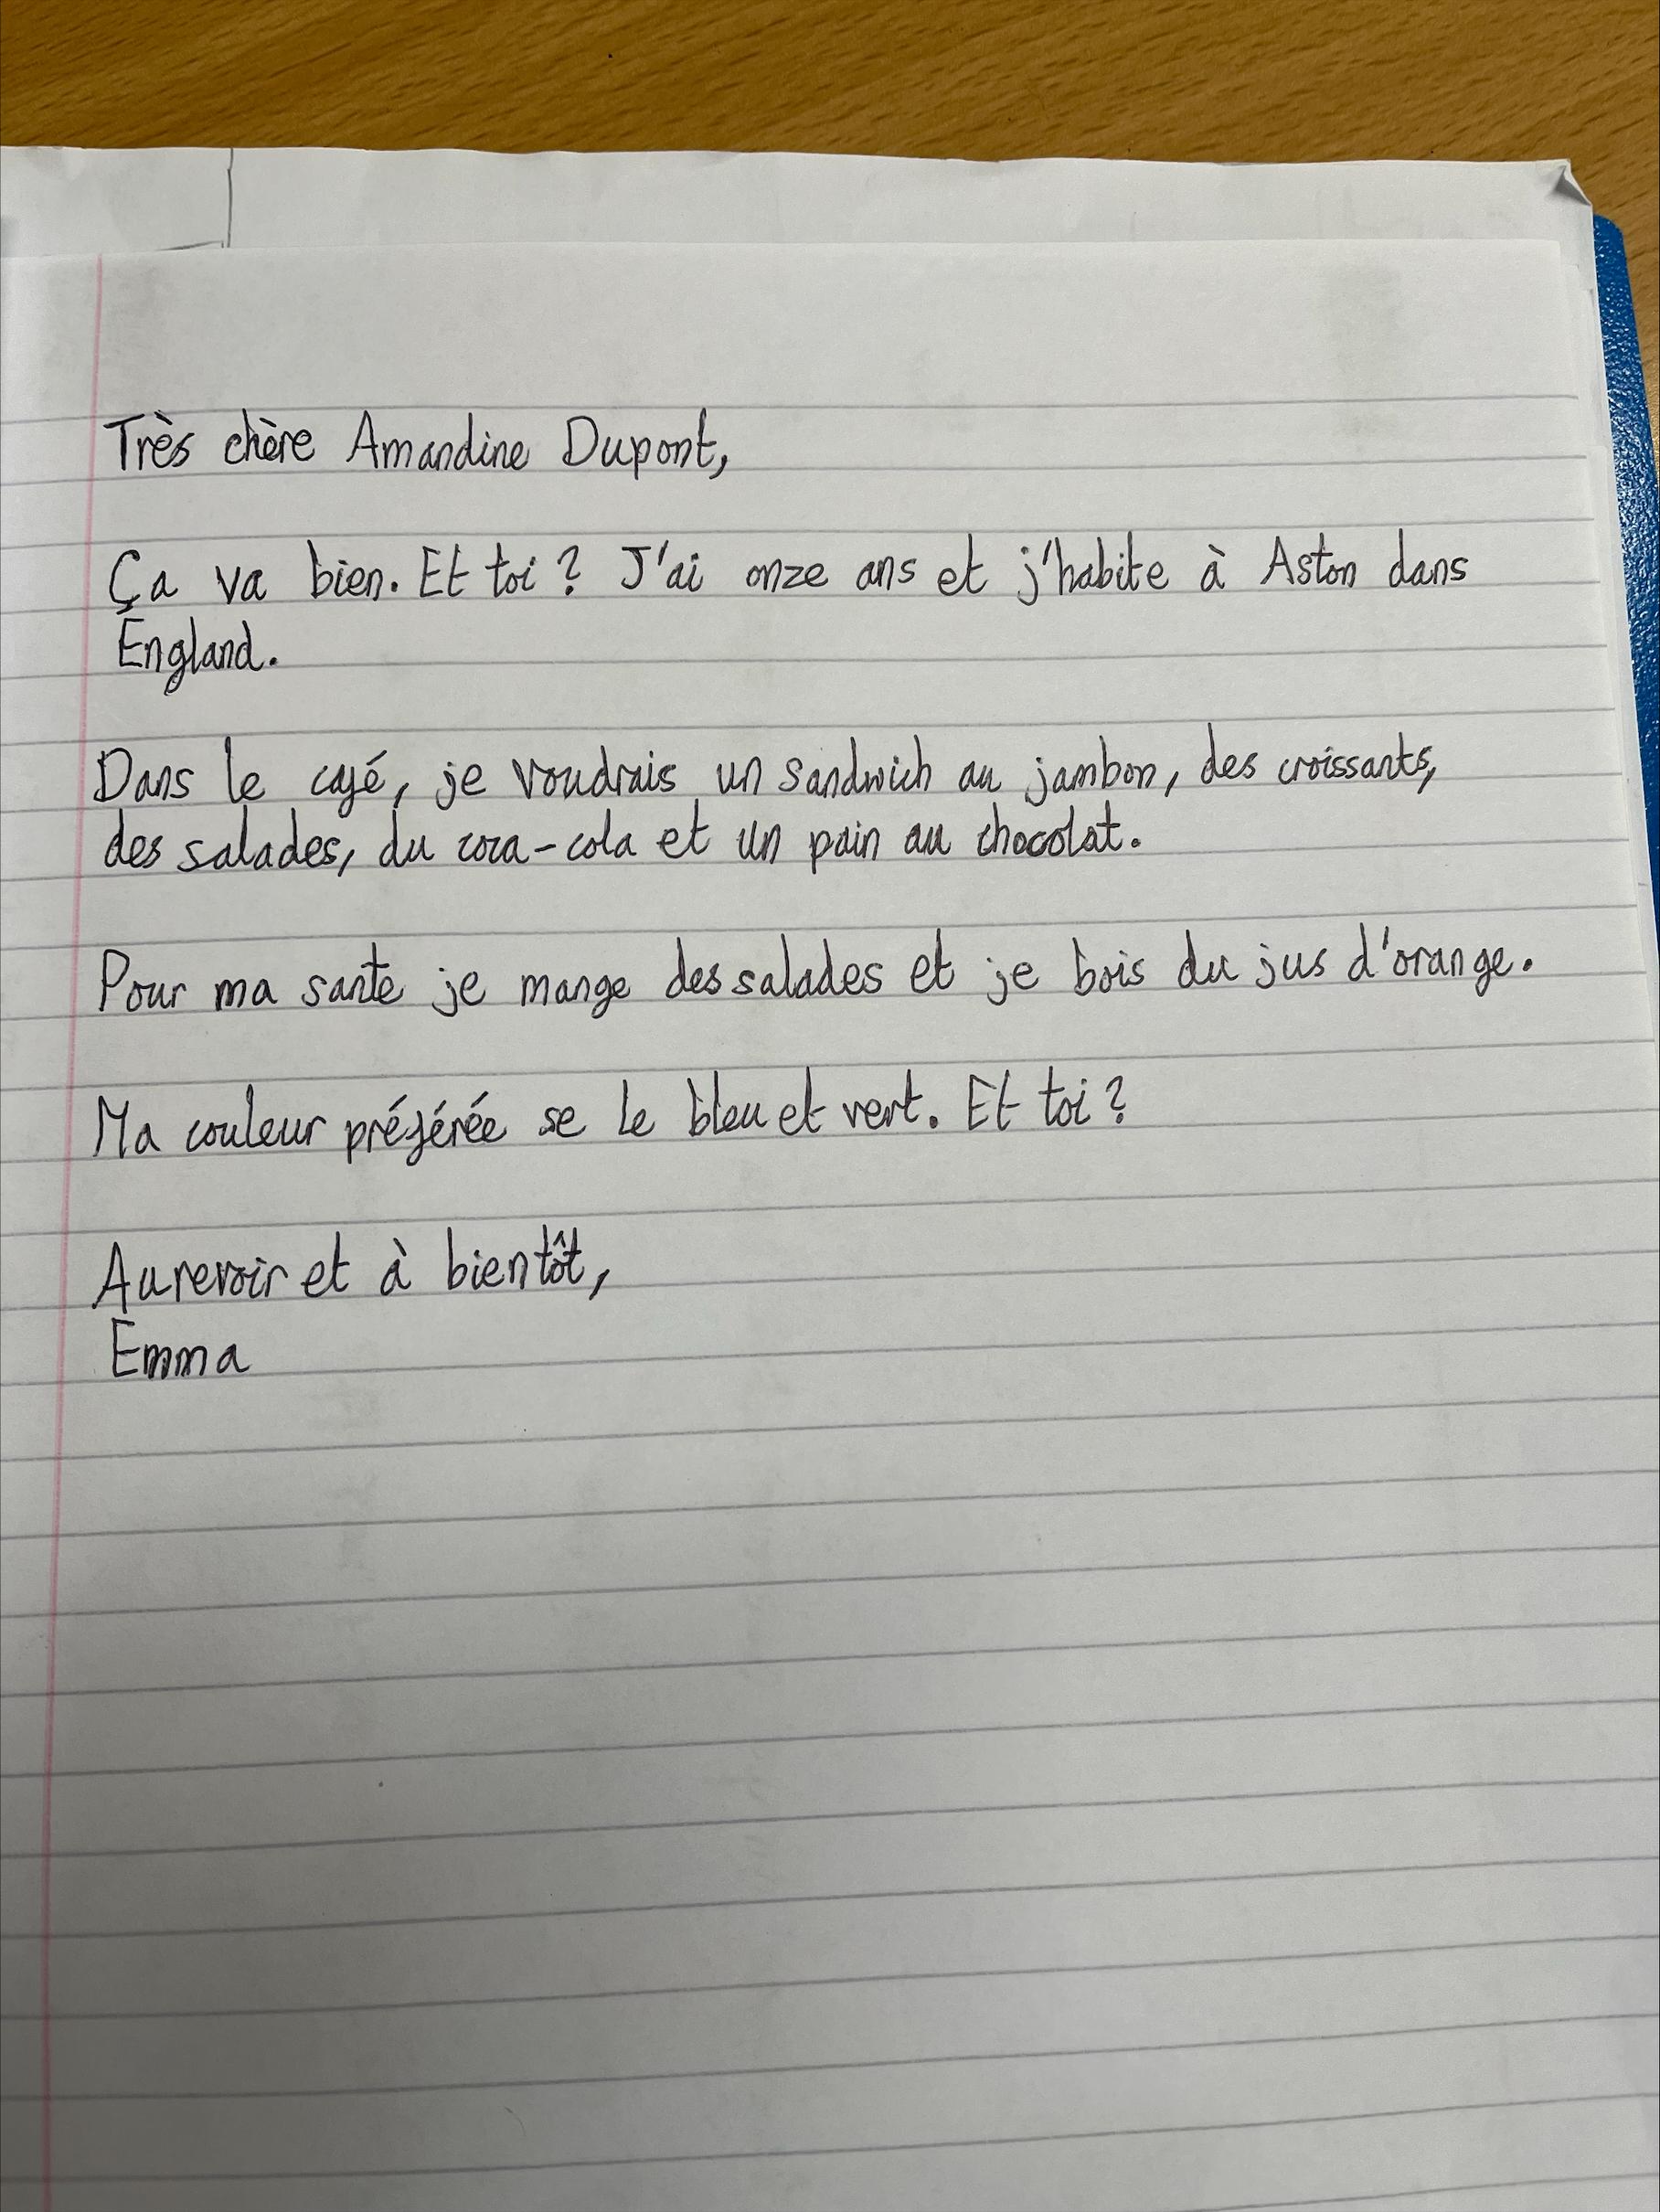 Très chère Amandine Dupont,
Ça va bien. Et toi? J'ai onze ans et j'habite à Aston dans
England.
Dans le café, je voudrais un sandwich au jambon, des croissants,
des salades, du coca-cola et un pain au chocolat.
Pour ma sante je mange des salades et je bois du jus d'orange.
Ma couleur préférée se le bleu et vert. Et toi?
Au revoir et à bientôt,
Emma